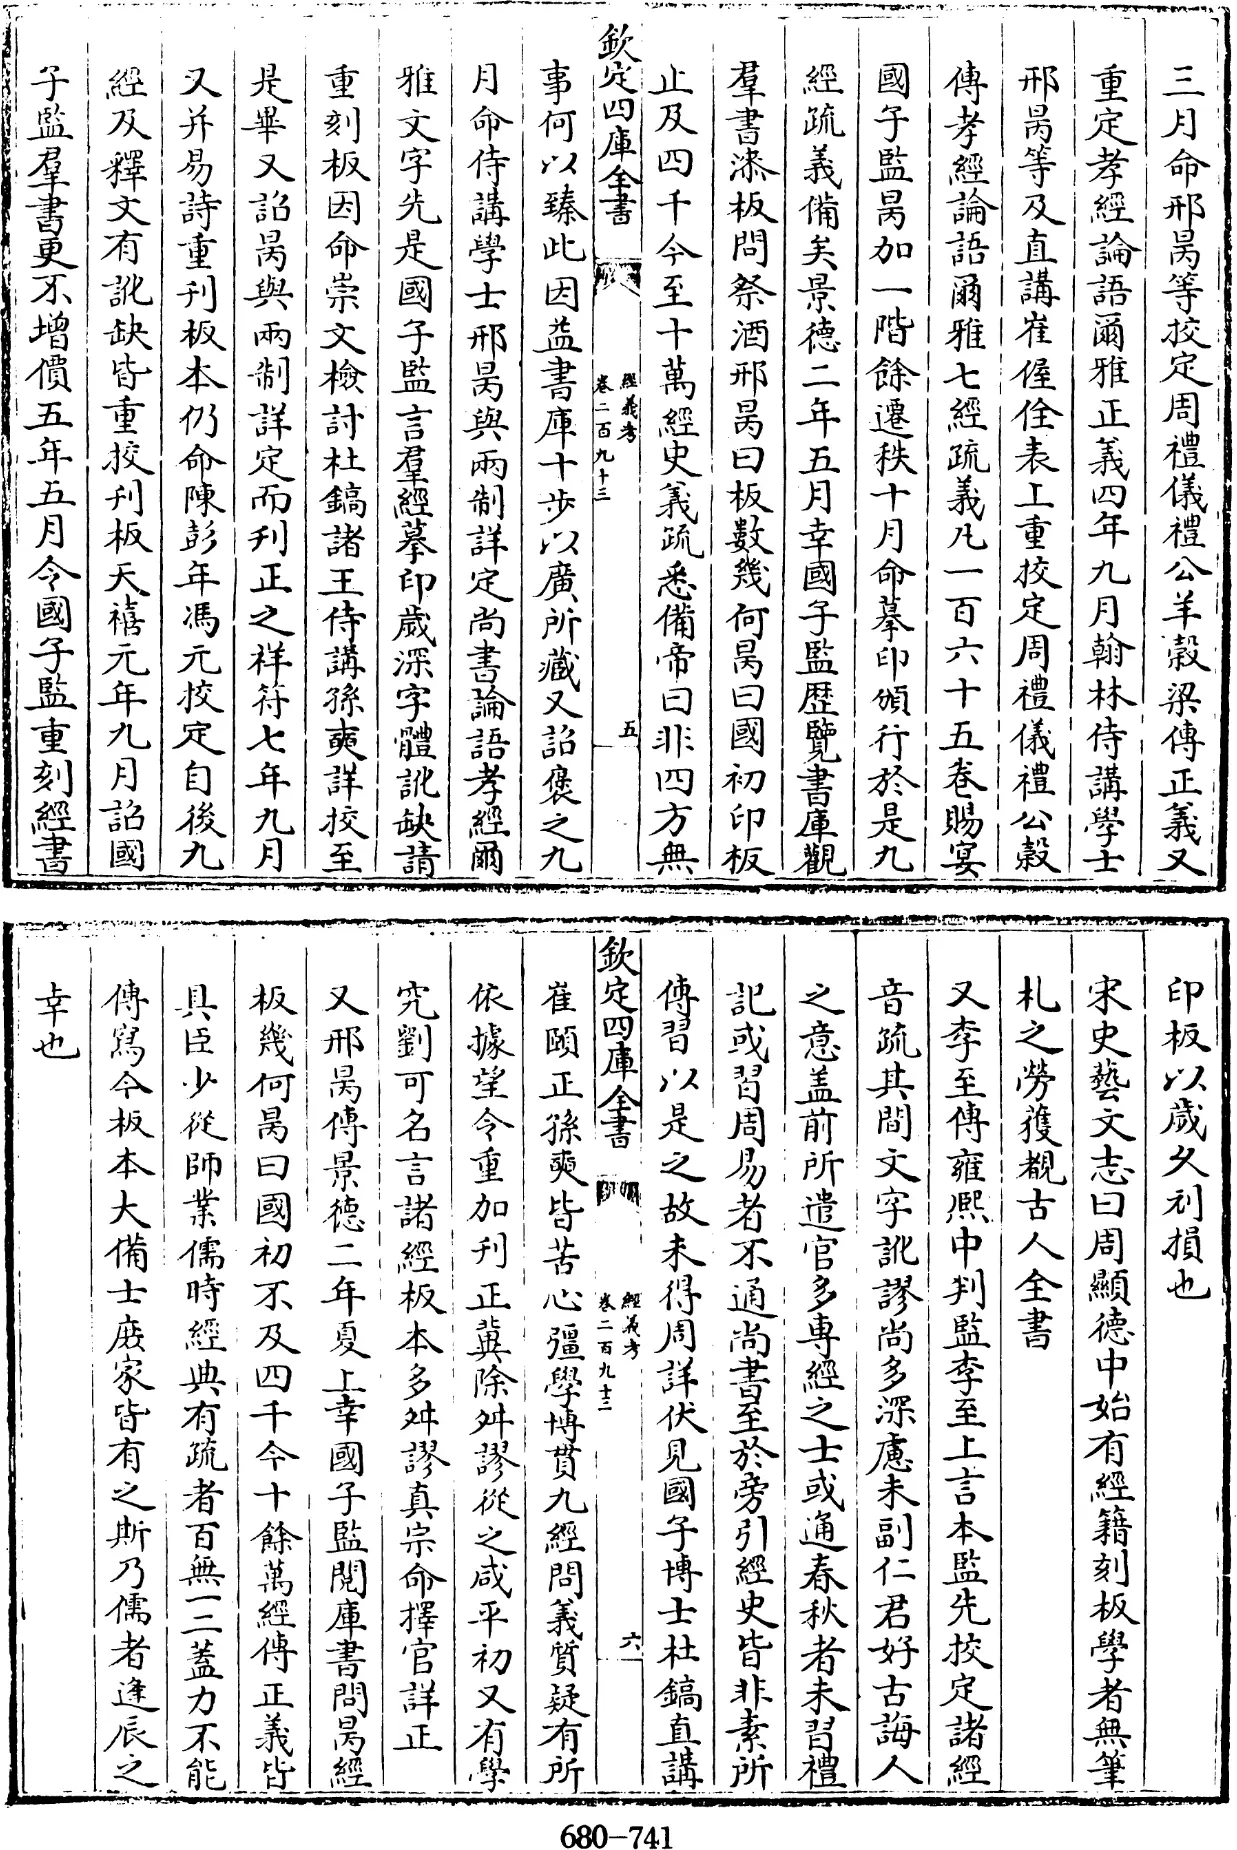 三月命邢昺等挍定周禮儀禮公羊穀梁傳正義又
重定孝經論語爾雅正義四年九月翰林侍講學士
邢昺等及直講崔偓佺表上重挍定周禮儀禮公穀
傳孝經論語爾雅七經疏義凡一百六十五卷賜宴
國子監昺加一階餘遷秩十月命摹印頒行於是九
經疏義備矣景德二年五月幸國子監歴覽書庫觀
羣書漆板問祭酒邢昺曰板數幾何昺曰國初印板
止及四千今至十萬經史義疏悉備帝曰非四方無
欽定四庫全書
經義考
卷二百九十三
五
事何以臻此因益書庫十步以廣所藏又詔褒之九
月命侍講學士邢昺與兩制詳定尚書論語孝經爾
雅文字先是國子監言羣經摹印歲深字體訛缺請
重刻板因命崇文檢討杜鎬諸王侍講孫奭詳挍至
是畢又詔昺與兩制詳定而刋正之祥符七年九月
又并易詩重刋板本仍命陳彭年馮元挍定自後九
經及釋文有訛缺皆重挍刋板天禧元年九月詔國
子監羣書更不增價五年五月令國子監重刻經書
印板以歲久刓損也
宋史藝文志曰周顯德中始有經籍刻板學者無筆
札之勞獲覩古人全書
又李至傳雍熙中判監李至上言本監先挍定諸經
音疏其間文字訛謬尚多深慮未副仁君好古誨人
之意盖前所遣官多專經之士或通春秋者未習禮
記或習周易者不通尚書至於旁引經史皆非素所
傳習以是之故未得周詳伏見國子博士杜鎬直講
欽定四庫全書
經義考
卷二百九十三
六
崔頤正孫奭皆苦心彊學博貫九經問義質疑有所
依據望令重加刋正冀除舛謬從之咸平初又有學
究劉可名言諸經板本多舛謬真宗命擇官詳正
又邢昺傳景德二年夏上幸國子監閱庫書問昺經
板幾何昺曰國初不及四千今十餘萬經傳正義皆
具臣少從師業儒時經典有疏者百無一二蓋力不能
傳寫今板本大備士庶家皆有之斯乃儒者逢辰之
幸也
680-741